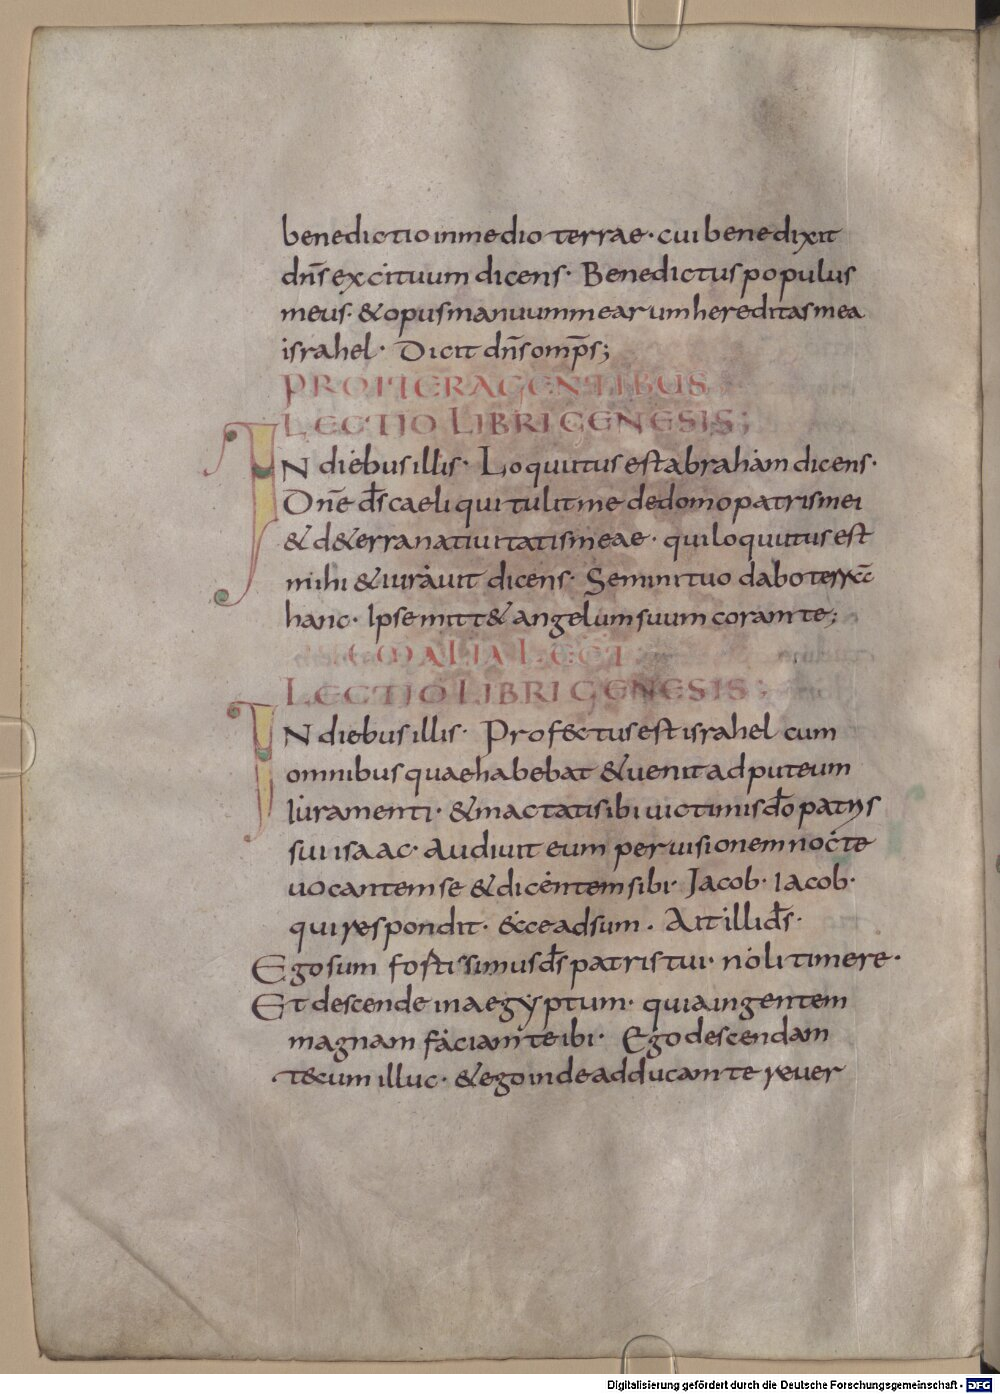 benedictio in medio terrae · cui benedixit
dn̄s excituum dicens · Benedictus populus
meus · & opus manuum mearum hereditas mea
israhel · Dicit dn̄s omp̄s;
PRO ITER AGENTIBUS
LECTIO LIBRI GENESIS;
IN diebus illis · Loquutus est abraham dicens ·
Dn̄e d̄s caeli qui tulit me de domo patris mei
& d& erra natiuitatis meae · qui loquutus est
mihi & iurauit dicens · Semini tuo dabo terrā
hanc · Ipse mitt& angelum suum coram te;
ALIA LECT
LECTIO LIBRI GENESIS;
IN diebus illis · Profectus est israhel cum
omnibus quae habebat & uenit ad puteum
Iuramenti · & mactatis ibi uictimis d̄o patris
sui isaac · Audiuit eum per uisionem nocte
uocantem se & dicentem sibi · Jacob · Iacob ·
qui respondit · &cce adsum · Ait illi d̄s ·
Ego sum fortissimus d̄s patris tui · noli timere ·
Et descende in aegyptum · quia in gentem
magnam faciam te ibi · Ego descendam
tecum illuc · & ego inde adducam te reuer
Digitalisierung gefördert durch die Deutsche Forschungsgemeinschaft - DFG